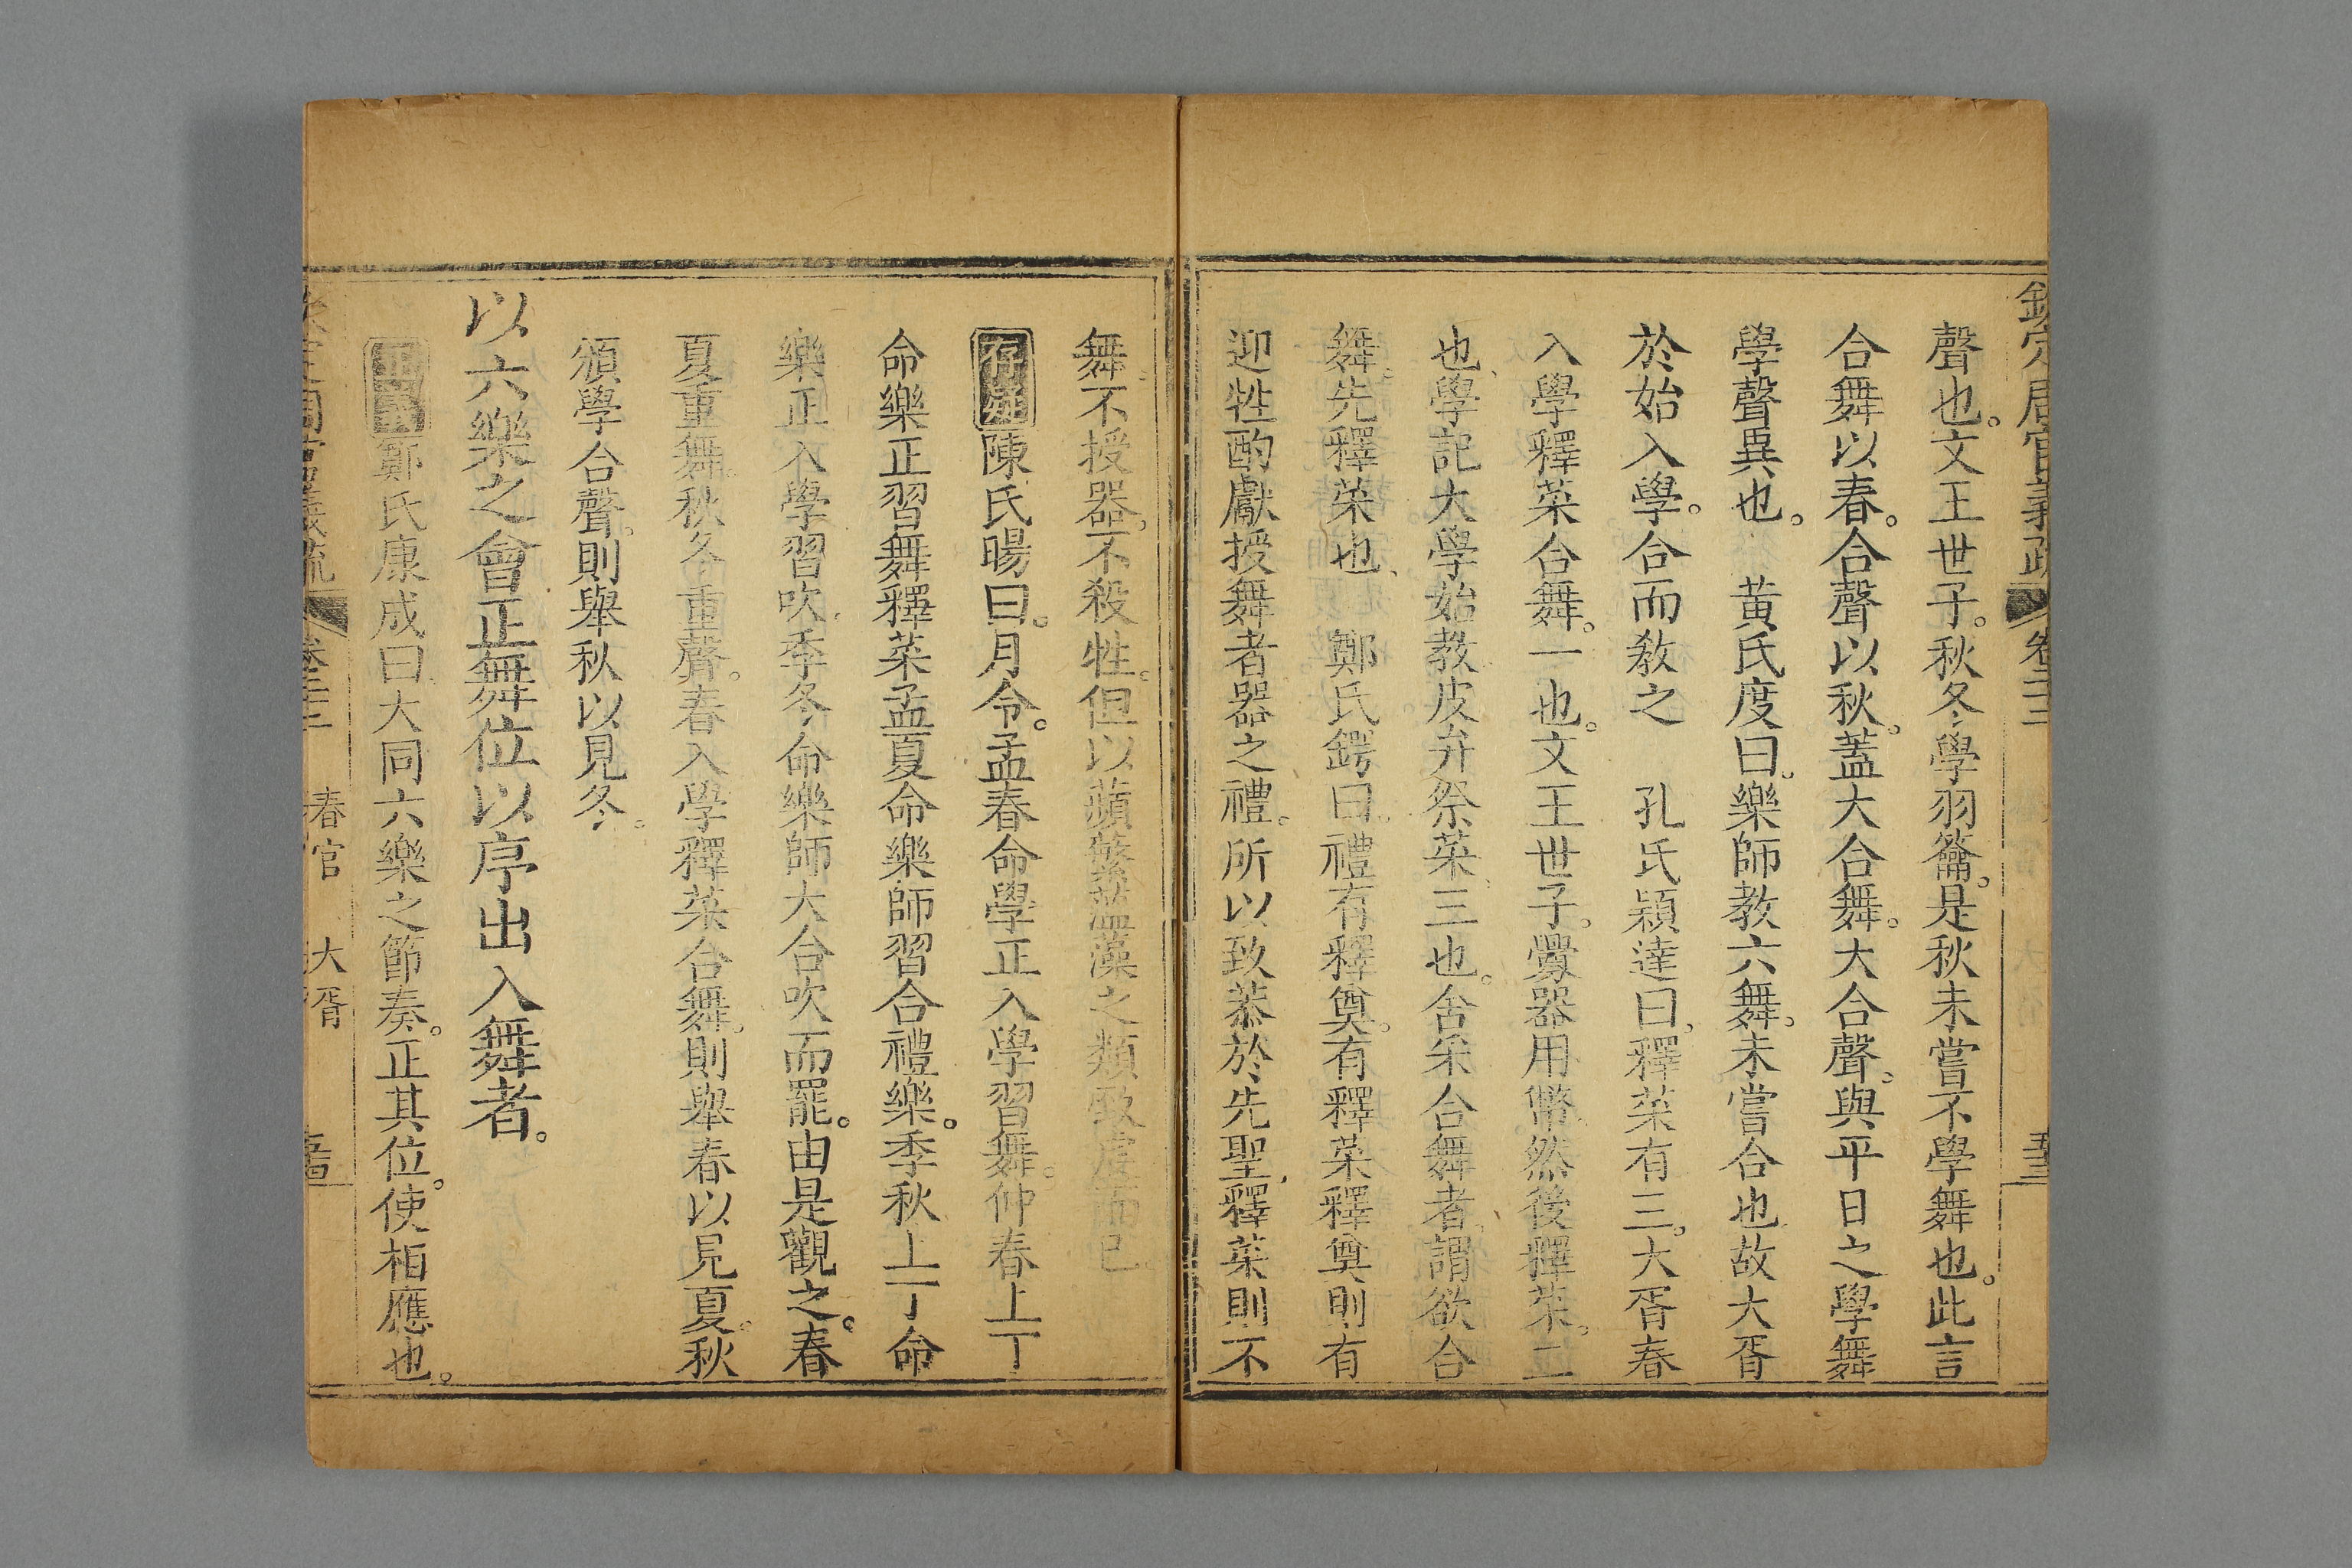 欽定周官義疏 卷二十三
聲也。文王世子。秋冬學羽籥。是秋未嘗不學舞也。此言
合舞以春。合聲以秋。蓋大合舞。大合聲。與平日之學舞
學聲異也。 黃氏度曰。樂師教六舞。未嘗合也故大胥
於始入學。合而教之 孔氏穎達曰。釋菜有三。大胥春
入學釋菜合舞。一也。文王世子。釁器用幣。然後釋菜。二
也。學記大學始教皮弁祭菜。三也。舍采合舞者。謂欲合
舞。先釋菜也。 鄭氏鍔曰。禮有釋奠。有釋菜釋奠則有
迎牲酌獻授舞者器之禮。所以致恭於先聖。釋菜則不
舞。不授器。不殺牲。但以蘋蘩薀藻之類致虔而已
存疑陳氏暘曰。月令。孟春命學正入學習舞。仲春上丁
命樂正習舞釋菜孟夏命樂師習合禮樂。季秋上丁命
樂正入學習吹。季冬命樂師大合吹而罷。由是觀之。春
夏重舞。秋冬重聲。春入學釋菜合舞。則舉春以見夏。秋
頒學合聲。則舉秋以見冬。
以六樂之會正舞位以序出入舞者。
正義鄭氏康成曰大同六樂之節奏。正其位。使相應也。
欽定周官義疏 卷二十三 春官 大胥